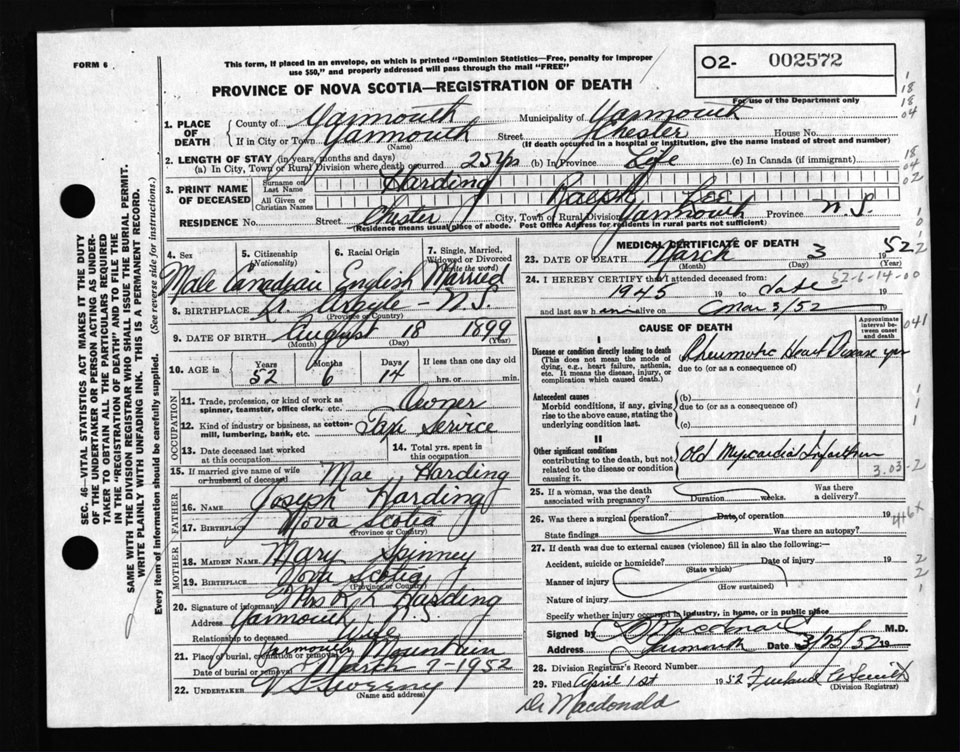 FORM 6
This form, if placed in an envelope, on which is printed "Dominion Statistics—Free, penalty for improper
use $50," and properly addressed will pass through the mail "FREE"
PROVINCE OF NOVA SCOTIA—REGISTRATION OF DEATH
O2- 002572
For use of the Department only
1. PLACE OF DEATH
County of Yarmouth Municipality of Yarmouth
If in City or Town Yarmouth Street Chester House No.
(Name) (If death occurred in a hospital or institution, give the name instead of street and number)
2. LENGTH OF STAY (in years, months and days)
(a) In City, Town or Rural Division where death occurred 25 yrs (b) In Province Life (c) In Canada (if immigrant)
3. PRINT NAME OF DECEASED
Surname or Last Name Harding
All Given or Christian Names Ralph Lee
RESIDENCE No. Street Chester City, Town or Rural Division Yarmouth Province N.S.
(Residence means usual place of abode. Post Office Address for residents in rural parts not sufficient)
4. Sex Male
5. Citizenship (Nationality) Canadian
6. Racial Origin English
7. Single, Married, Widowed or Divorced (Write the word) Married
8. BIRTHPLACE Argyle - N.S.
(Province or Country)
9. DATE OF BIRTH August 18 1899
(Month) (Day) (Year)
10. AGE in Years 52 Months 6 Days 14 If less than one day old
hrs. or min.
OCCUPATION
11. Trade, profession, or kind of work as
spinner, teamster, office clerk, etc. Owner
12. Kind of industry or business, as cotton-
mill, lumbering, bank, etc. Taxi Service
13. Date deceased last worked at this occupation
14. Total yrs. spent in this occupation
15. If married give name of wife
or husband of deceased Mae Harding
FATHER
16. NAME Joseph Harding
17. BIRTHPLACE Nova Scotia
(Province or Country)
MOTHER
18. MAIDEN NAME Mary Spinney
19. BIRTHPLACE Nova Scotia
(Province or Country)
20. Signature of informant Mrs R L Harding
Address Yarmouth, N.S.
Relationship to deceased Wife
21. Place of burial, cremation or removal Yarmouth Mountain
Date of burial or removal March 7-1952
22. UNDERTAKER V S Sweeny
(Name and address)
MEDICAL CERTIFICATE OF DEATH
23. DATE OF DEATH March 3 1952
(Month) (Day) (Year)
52-6-14-00
24. I HEREBY CERTIFY that I attended deceased from:
1945 19 to date 19
and last saw h alive on Mar 3/52 19
CAUSE OF DEATH
Approximate interval between onset and death
I
Disease or condition directly leading to death
(This does not mean the mode of
dying, e.g., heart failure, asthenia,
etc. It means the disease, injury, or
complication which caused death.)
Rheumatic Heart Disease yrs
due to (or as a consequence of)
Antecedent causes
Morbid conditions, if any, giving
rise to the above cause, stating the
underlying condition last.
(b)
due to (or as a consequence of)
(c)
II
Other significant conditions
contributing to the death, but not
related to the disease or condition
causing it.
Old Myocardial Infarction
3.03-2
25. If a woman, was the death
associated with pregnancy? Duration weeks. Was there a delivery?
26. Was there a surgical operation? Date of operation 19
State findings Was there an autopsy?
27. If death was due to external causes (violence) fill in also the following:—
Accident, suicide or homicide? Date of injury 19
(State which)
Manner of injury
(How sustained)
Nature of injury
Specify whether injury occurred in industry, in home, or in public place
Signed by Macdonald M.D.
Address Yarmouth Date 3/25/52 19
28. Division Registrar's Record Number
29. Filed April 1st 1952
(Division Registrar)
Dr Macdonald
SEC. 46—VITAL STATISTICS ACT MAKES IT THE DUTY
OF THE UNDERTAKER OR PERSON ACTING AS UNDER-
TAKER TO OBTAIN ALL THE PARTICULARS REQUIRED
IN THE "REGISTRATION OF DEATH" AND TO FILE THE
SAME WITH THE DIVISION REGISTRAR WHO SHALL ISSUE THE BURIAL PERMIT.
WRITE PLAINLY WITH UNFADING INK. THIS IS A PERMANENT RECORD.
Every item of information should be carefully supplied. (See reverse side for instructions.)